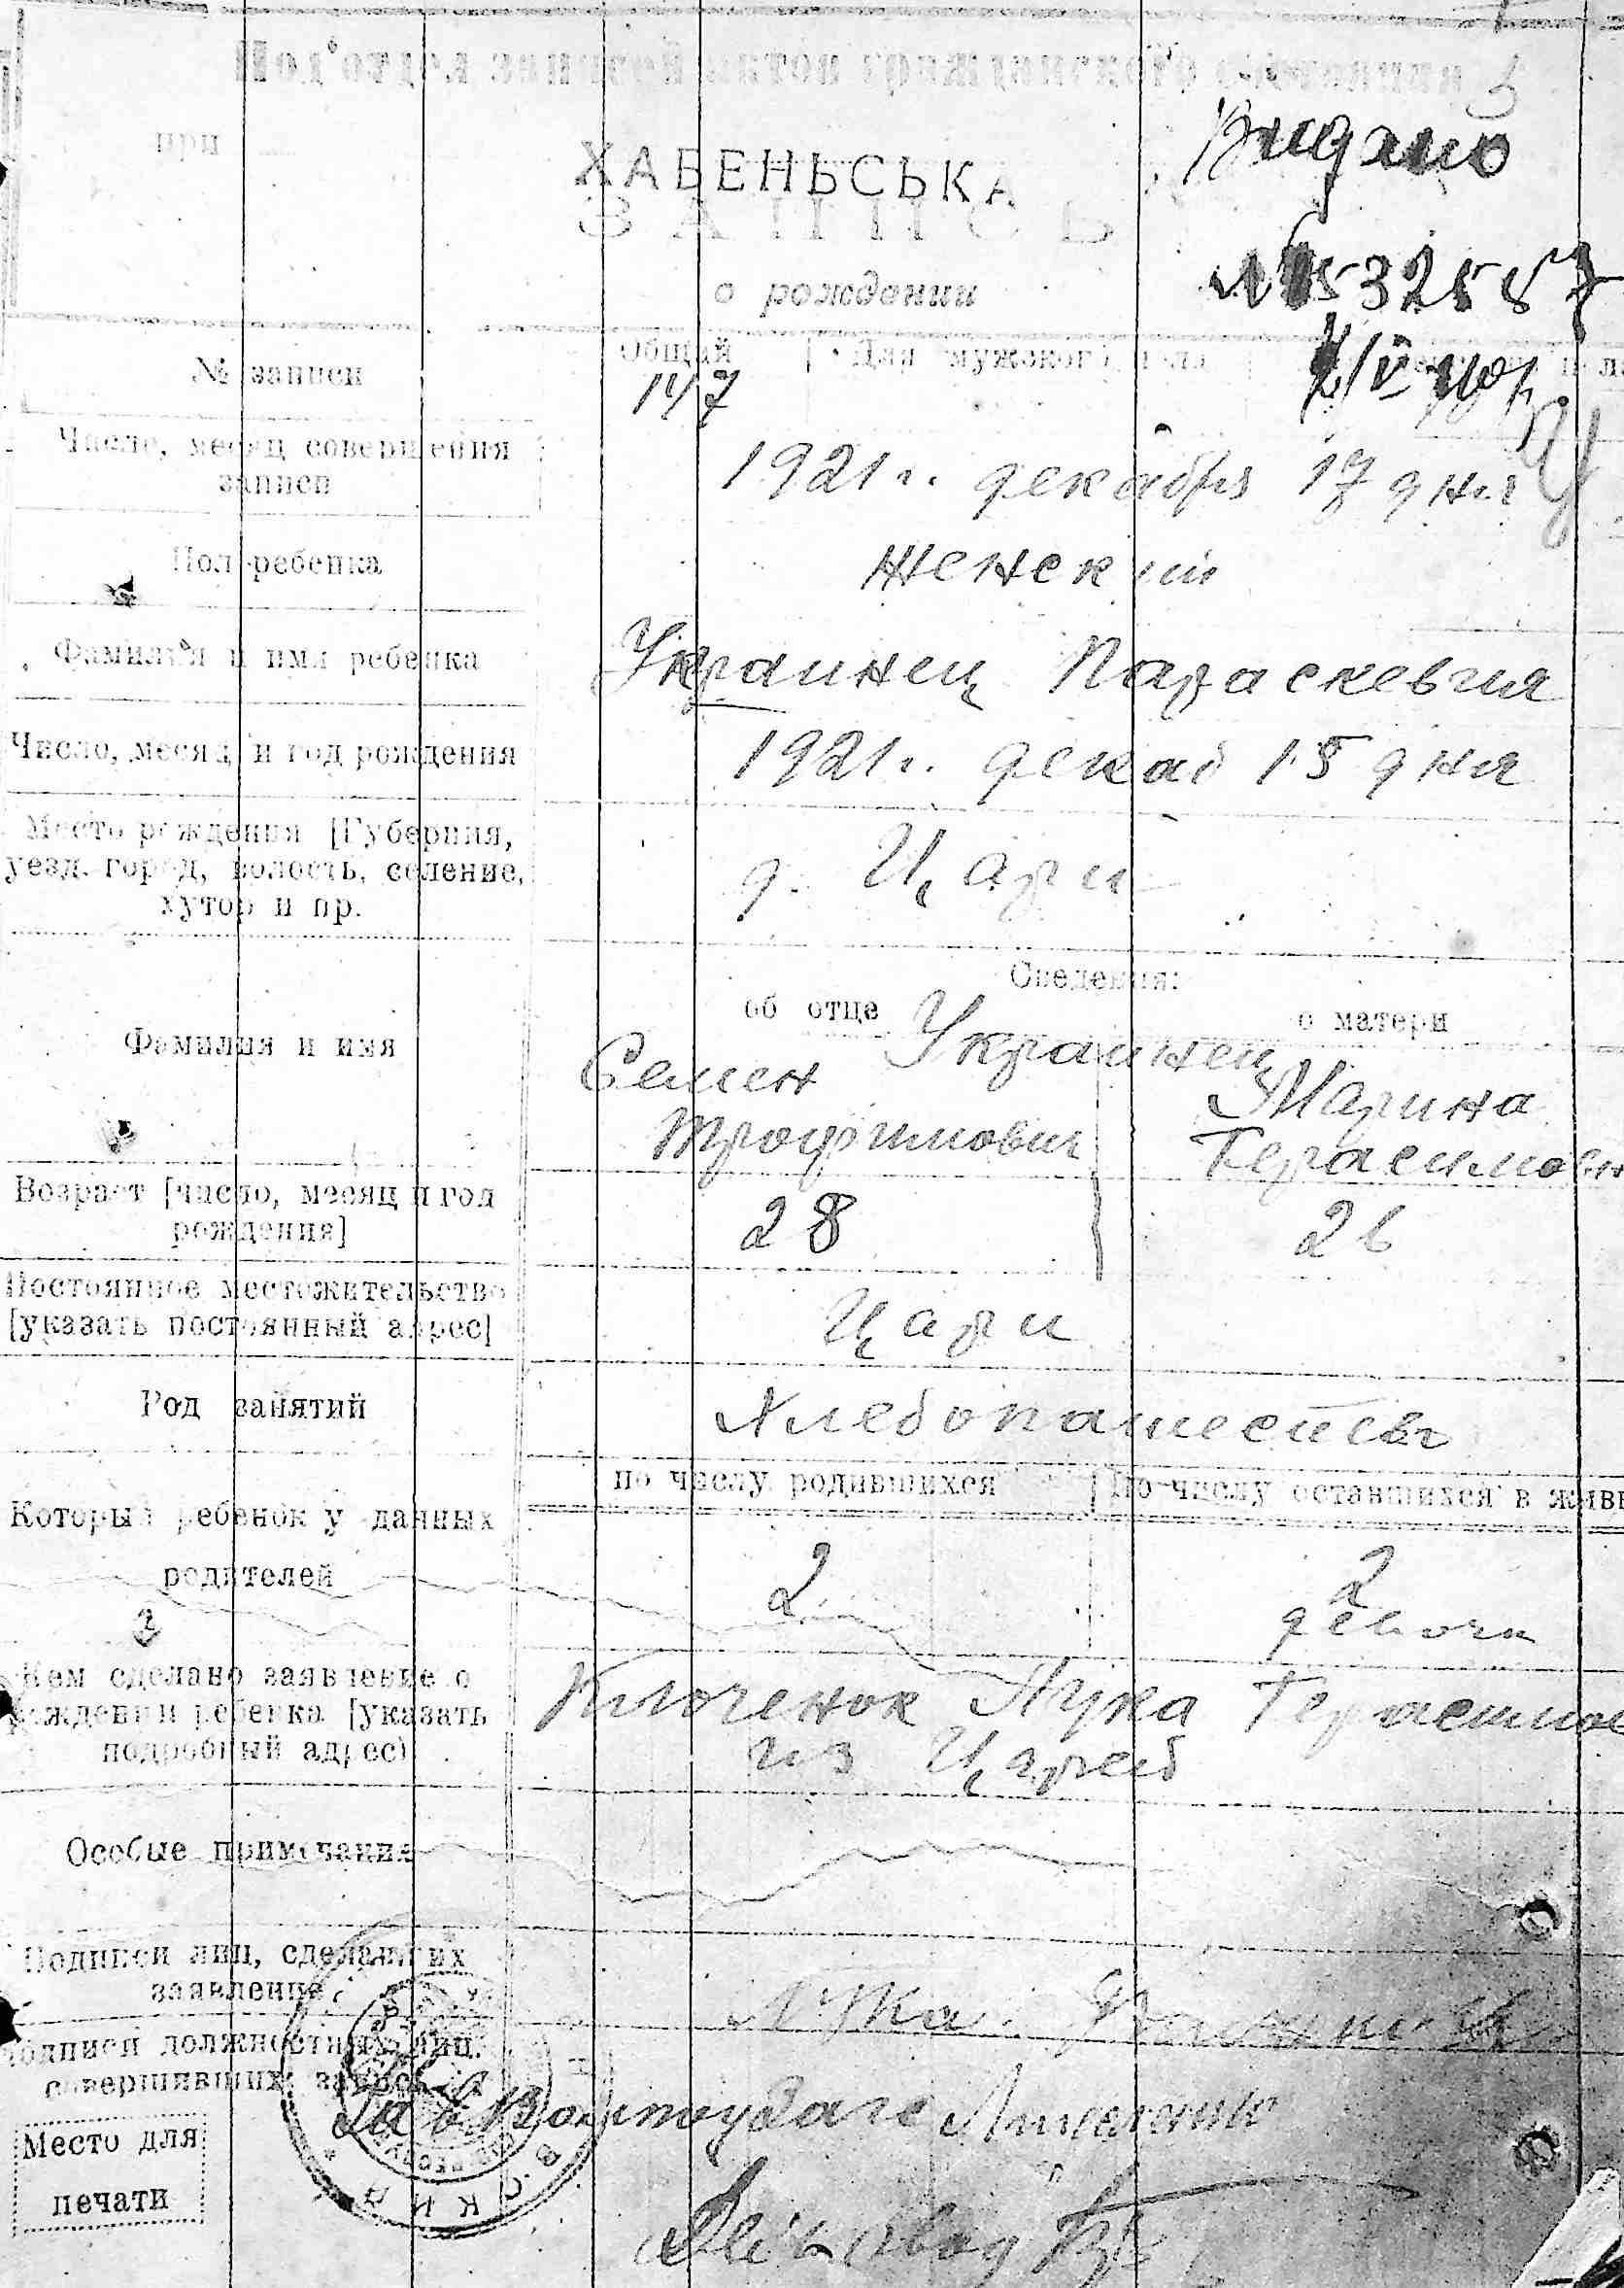 Под'отдел записей актов гражданского состояния
3
при
ХАБЕНЬСЬКА
Видано
ЗАПИСЬ
о рождении
№ 532587
№ записи
Общий
Для мужского пола
147
Число, месяц совершения
записи
1921 г. декабря 17 дня
Пол ребенка
женский
Фамилия и имя ребенка
Украинец Параскевия
Число, месяц и год рождения
1921 г. декаб 15 дня
Место рождения [Губерния,
уезд, город, волость, селение,
хутор и пр.
д. Цари
Сведения:
об отце
о матери
Фамилия и имя
Украинец
Семен
Трофимович
Марина
Герасимовн
Возраст [число, месяц и год
рождения]
28
26
Постоянное местожительство
[указать постоянный адрес]
Цари
Род занятий
Хлебопашество
по числу родившихся
По числу оставшихся в жив
Который ребенок у данных
родителей
2
2
девочк
Кем сделано заявление о
рождении ребенка [указать
подробный адрес)
Ключенок Лука Герасимов
из Царей
Особые примечания
Подписи лиц, сделавших
заявление
Лука
Подписи должностных лиц,
совершивших запись
Зав
Место для
печати
Делавод